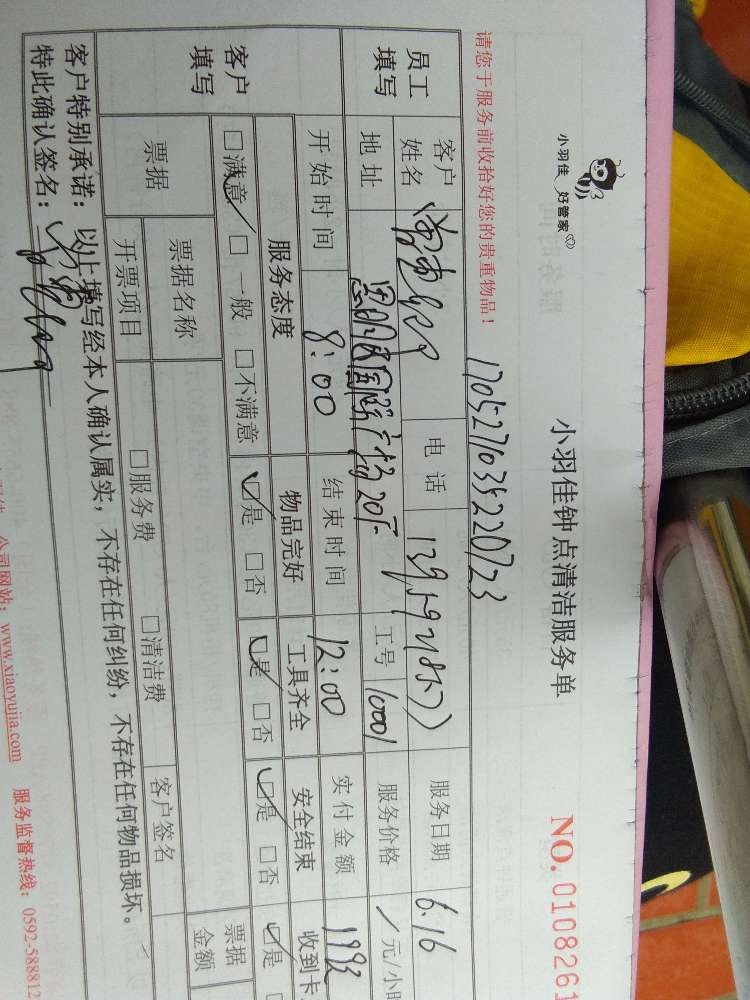 小羽佳 好管家
小羽佳钟点清洁服务单
NO.0108261
请您于服务前收拾好您的贵重物品！
1705271035220723
员工填写 客户姓名 电话 服务日期 6.16
地址 国际广场20F 工号 10001 服务价格 / 元/小时
开始时间 8:00 结束时间 12:00 实付金额 1992
客户填写 服务态度 物品完好 工具齐全 安全结束 收到卡
□满意 □一般 □不满意 □是 □否 □是 □否 □是 □否 □是
票据 票据名称 □服务费 □清洁费 客户签名 票据金额
开票项目
客户特别承诺：以上填写经本人确认属实，不存在任何纠纷，不存在任何物品损坏。
特此确认签名：
公司网站：www.xiaoyujia.com 服务监督热线：0592-588812